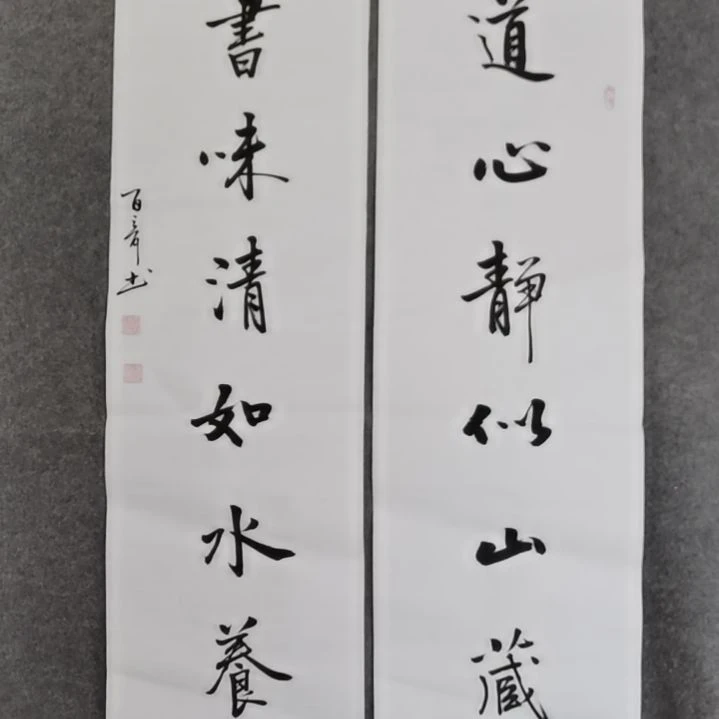 道心静似山藏
書味清如水養